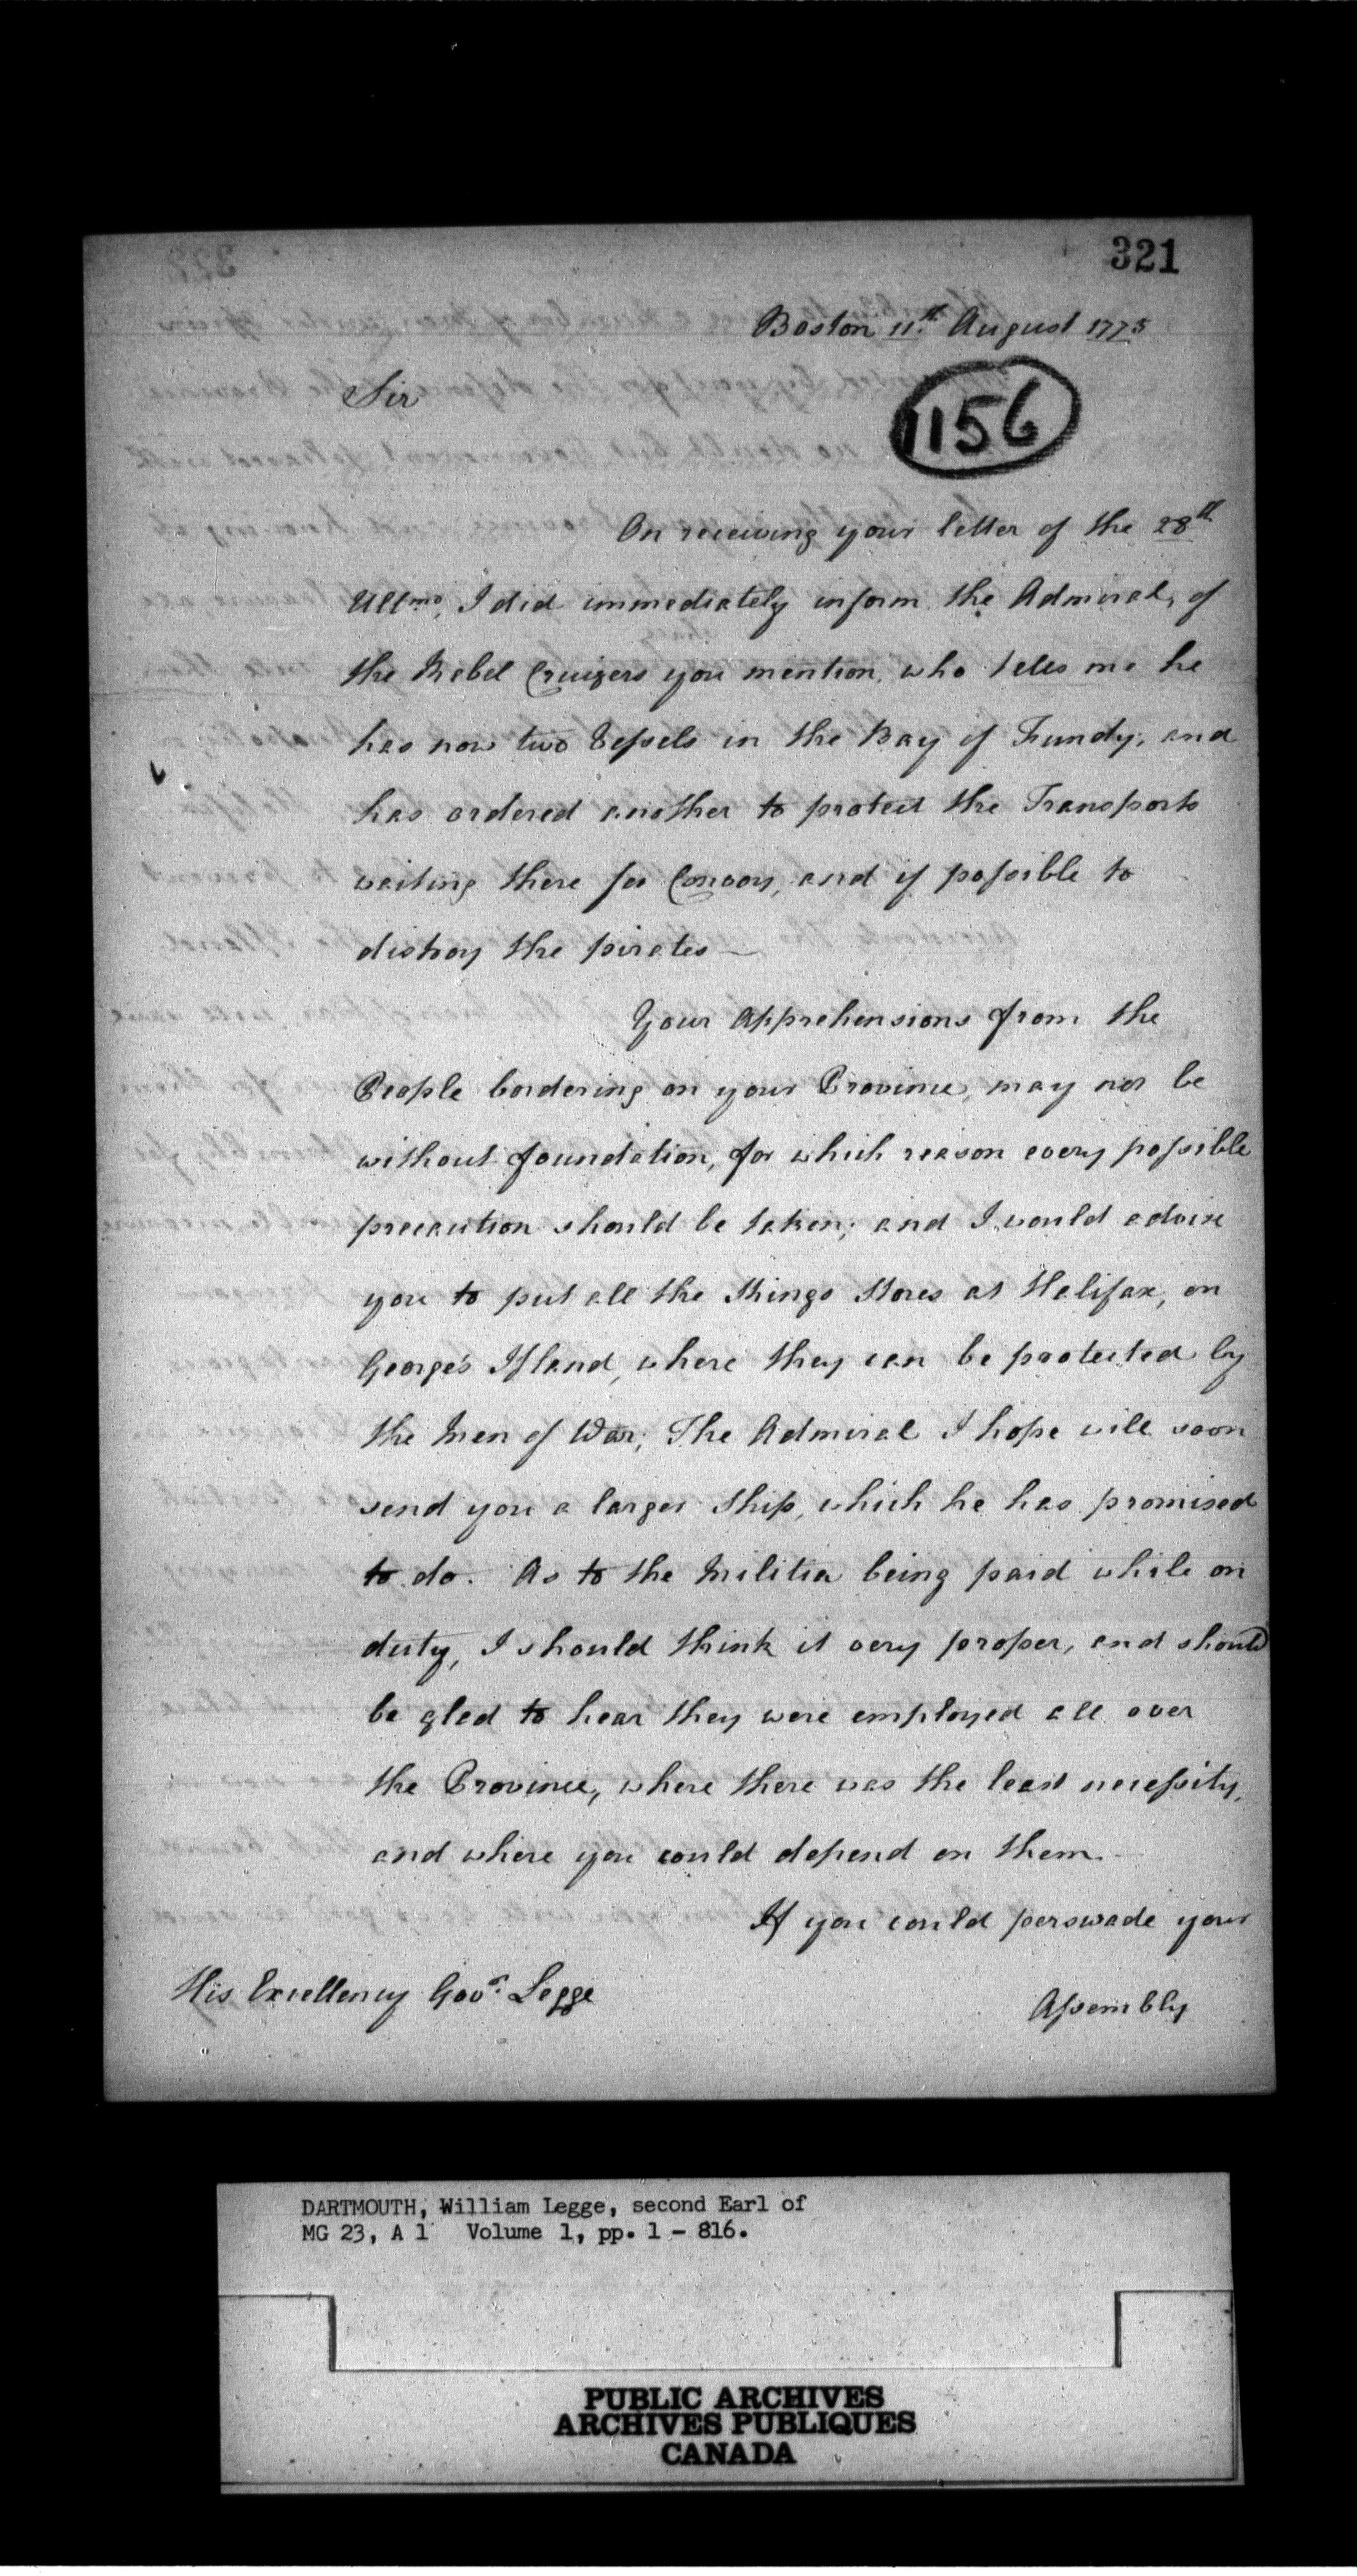 321
Boston 11.th August 1775
Sir
1156
On receiving your letter of the 28th
Ultmo, I did immediately inform the Admiral, of
the Rebel Cruizers you mention, who tells me he
has now two Vessels in the Bay of Fundy, and
has ordered another to protect the Transports
waiting there for Convoy, and if possible to
distroy the pirates —
Your Apprehensions from the
People bordering on your Province, may not be
without foundation, for which reason every possible
precaution should be taken; and I would advise
you to put all the Kings Stores at Halifax, on
George's Island, where they can be protected by
the Men of War; The Admiral I hope will soon
send you a larger Ship, which he has promised
to do. As to the Militia being paid while on
duty, I should think it very proper, and should
be glad to hear they were employed all over
the Province, where there was the least necessity,
and where you could depend on them. —
If you could perswade your
His Excellency Govr. Legge
Assembly
DARTMOUTH, William Legge, second Earl of
MG 23, A 1 Volume 1, pp. 1 - 816.
PUBLIC ARCHIVES
ARCHIVES PUBLIQUES
CANADA